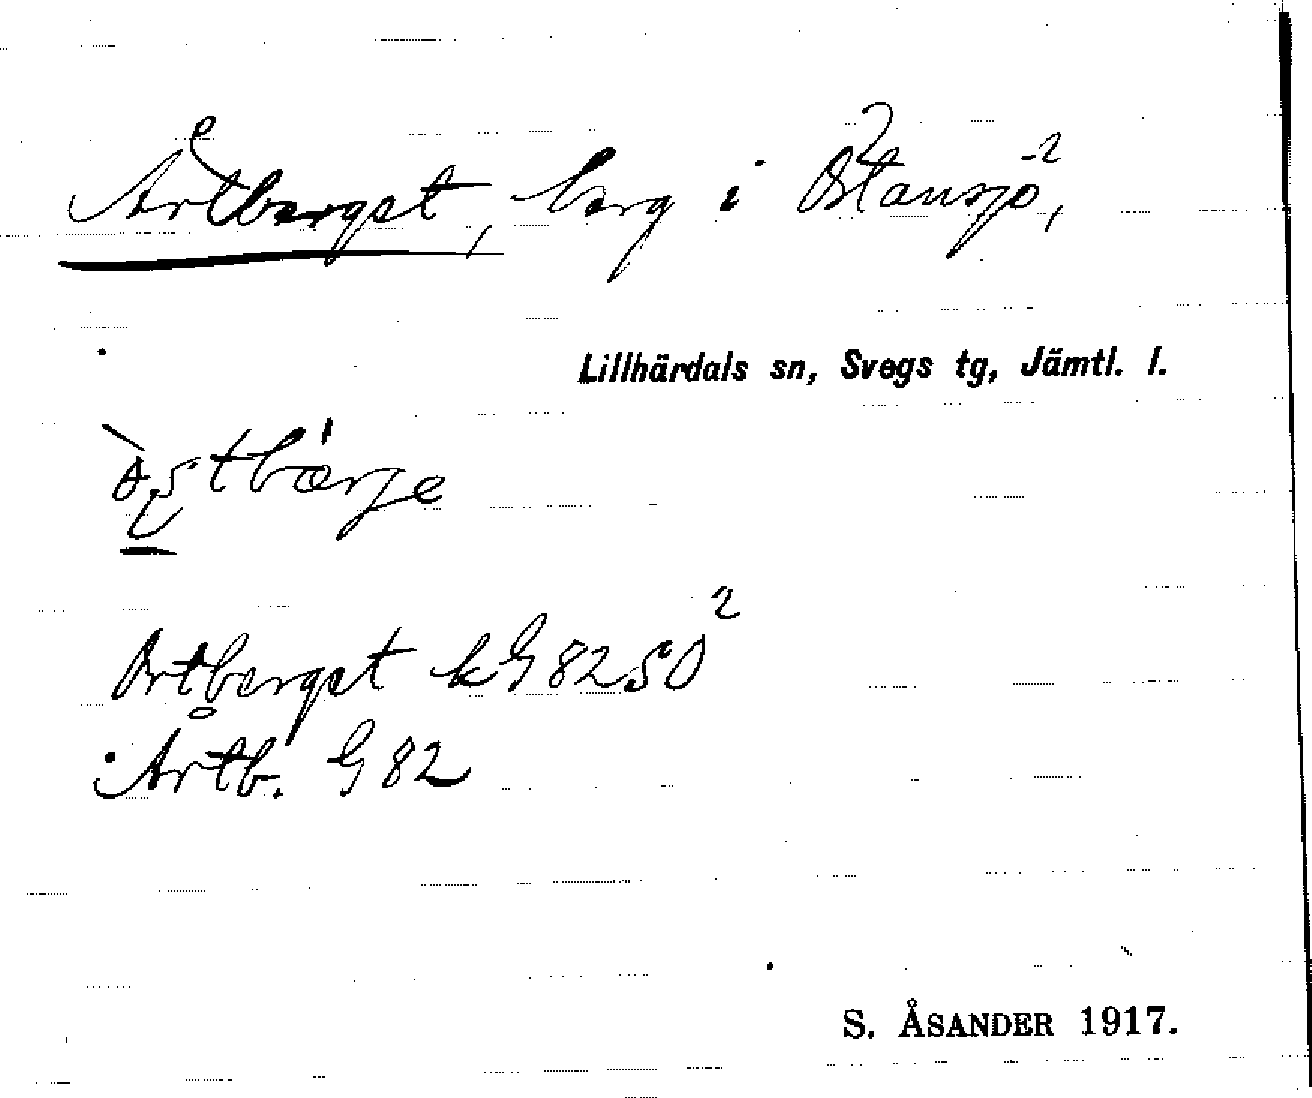 Årtberget, berg i Östansjö,
Lillhärdals sn, Svegs tg, Jämtl. l.
Ortberget kG 82 SO²
Artb. G 82
S. ÅSANDER 1917.